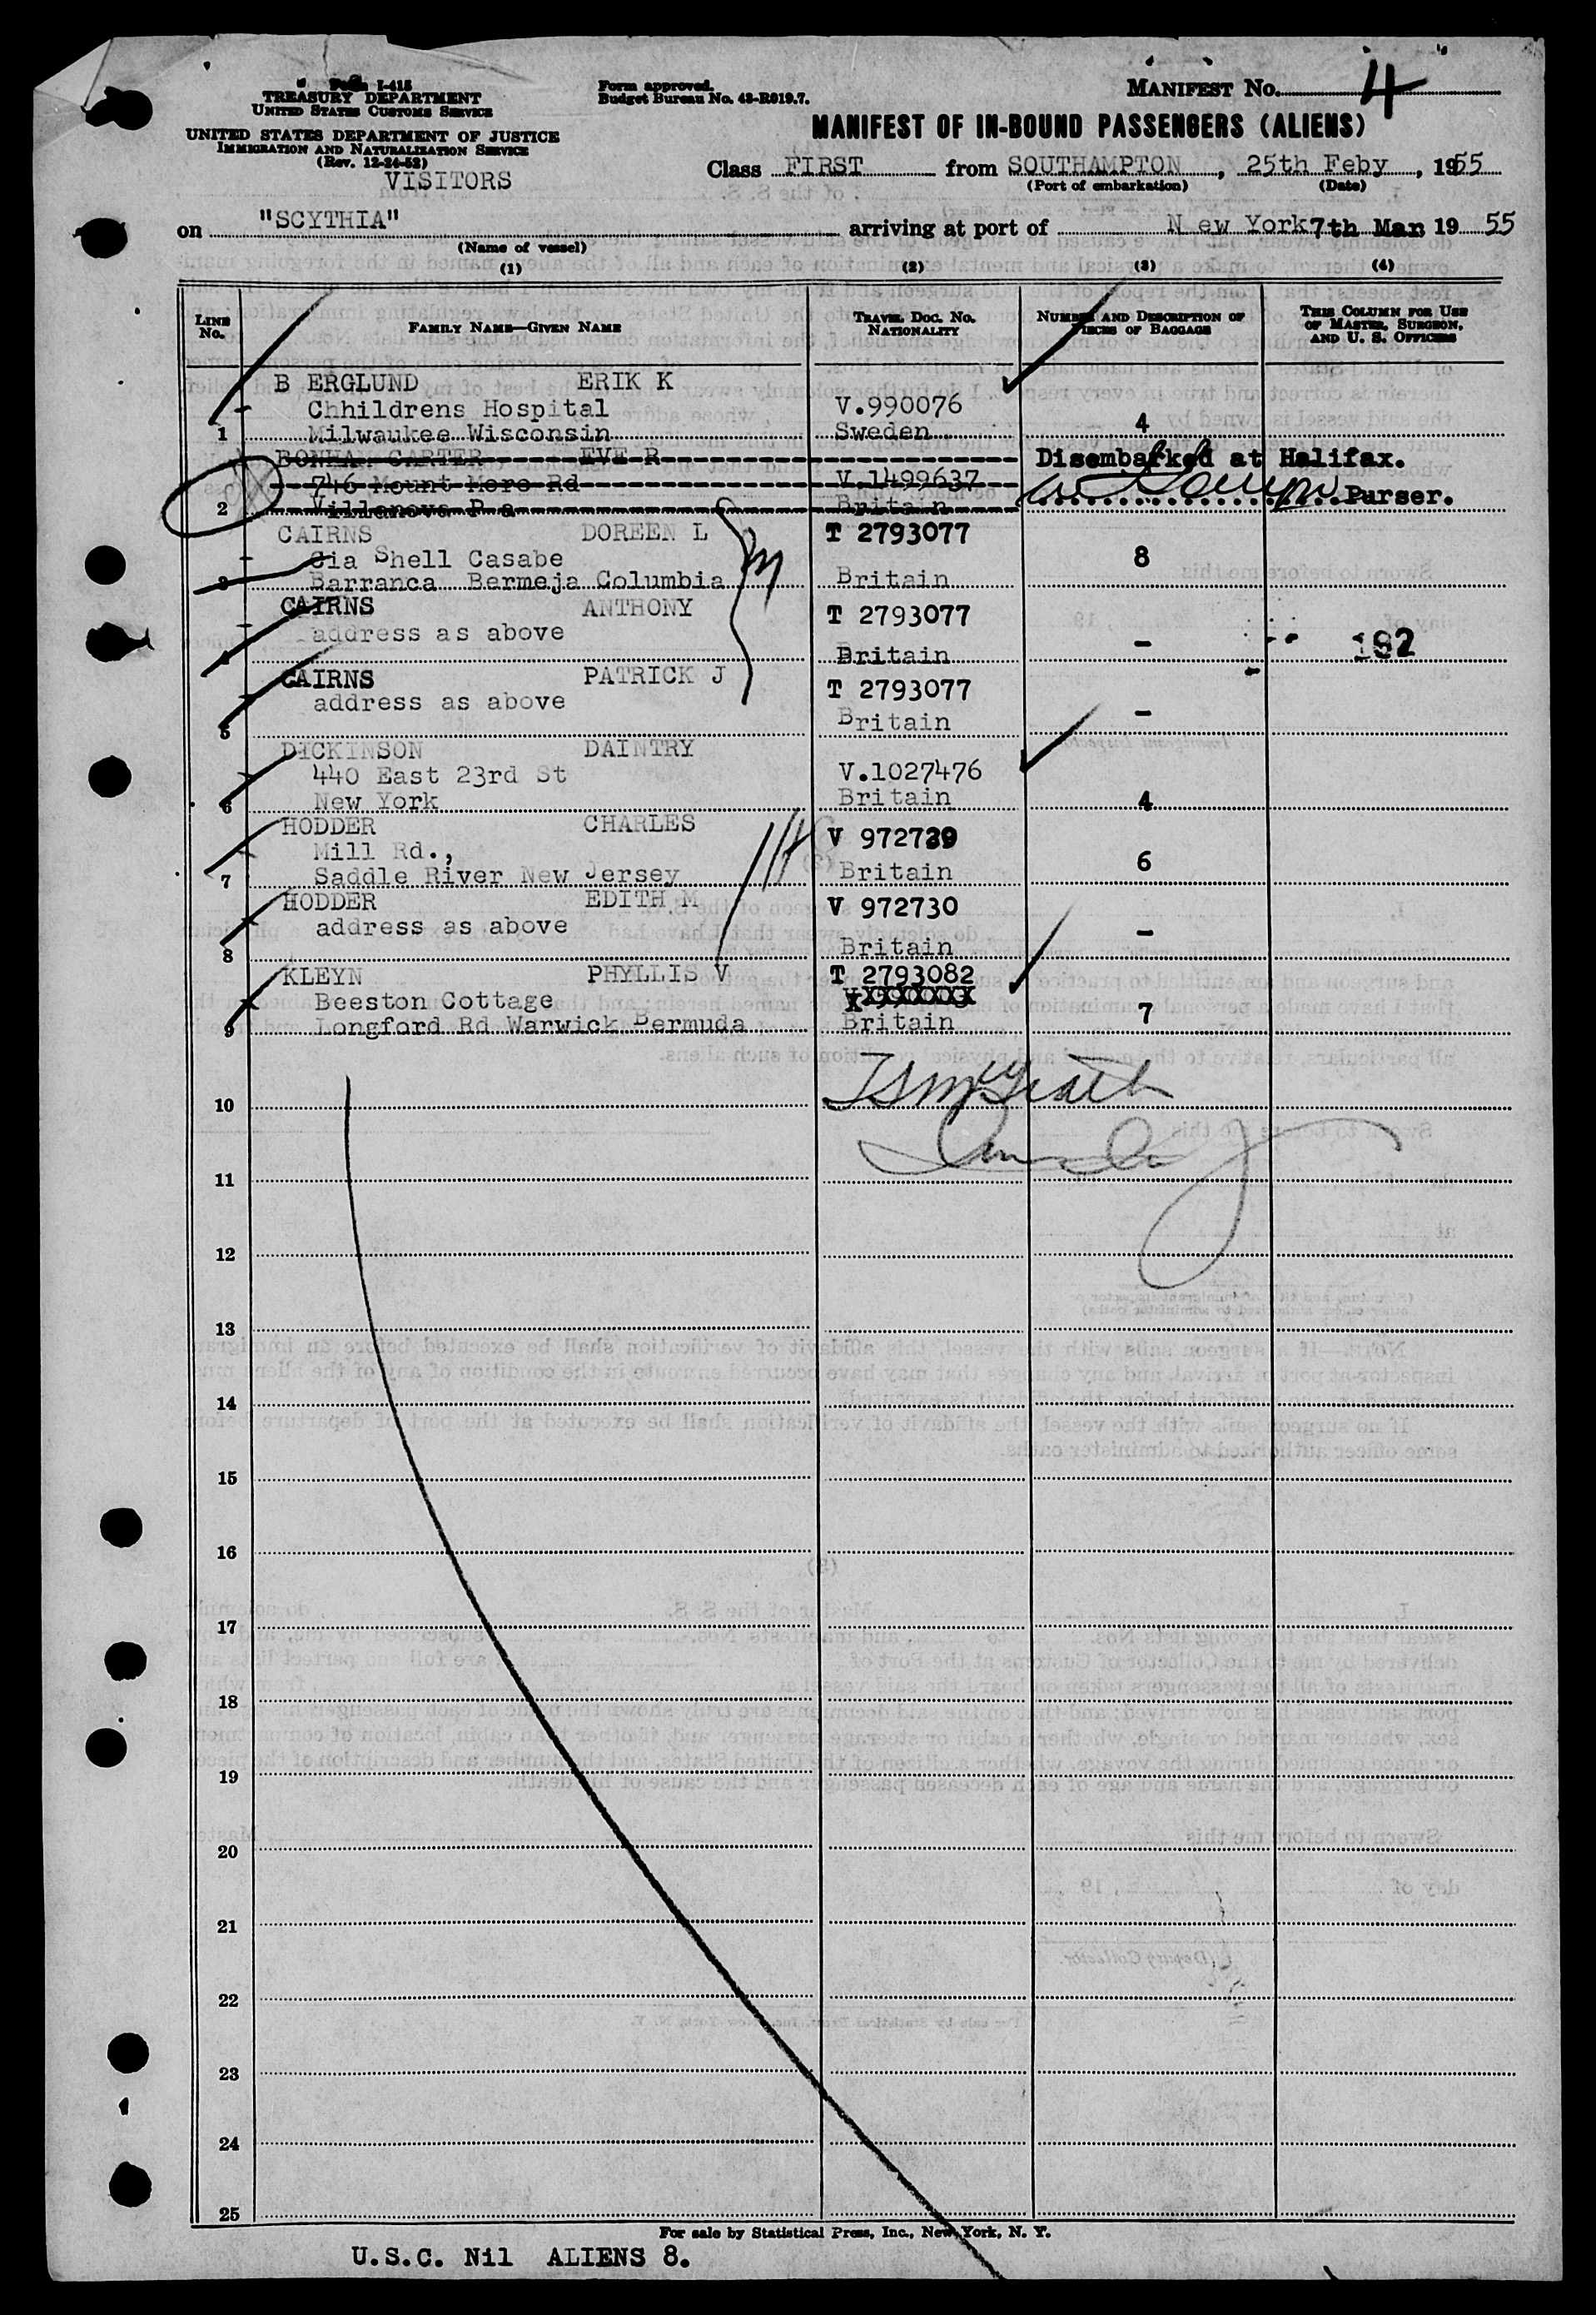 Form I-415
TREASURY DEPARTMENT
UNITED STATES CUSTOMS SERVICE
UNITED STATES DEPARTMENT OF JUSTICE
IMMIGRATION AND NATURALIZATION SERVICE
(Rev. 12-24-52)
VISITORS
Form approved.
Budget Bureau No. 43-R019.7.
MANIFEST NO. 4
MANIFEST OF IN-BOUND PASSENGERS (ALIENS)
Class FIRST from SOUTHAMPTON, 25th Feby, 1955
(Port of embarkation) (Date)
on "SCYTHIA" arriving at port of N ew York 7th Mar. 19 55
(Name of vessel)
(1) (2) (3) (4)
LINE No. FAMILY NAME—GIVEN NAME TRAVEL DOC. NO. NATIONALITY NUMBER AND DESCRIPTION OF PIECES OF BAGGAGE THIS COLUMN FOR USE OF MASTER, SURGEON, AND U. S. OFFICERS
B ERGLUND ERIK K
Chhildrens Hospital V.990076
1 Milwaukee Wisconsin Sweden 4
BONHAM CARTER EVE R Disembarked at Halifax.
746 Mount Moro Rd V.1499637 Purser.
2 Villanova P a Britain
CAIRNS DOREEN L T 2793077
Cia Shell Casabe 8
3 Barranca Bermeja Columbia Britain
CAIRNS ANTHONY T 2793077
address as above - 192
4 Britain
CAIRNS PATRICK J T 2793077
address as above Britain -
5
DICKINSON DAINTRY
440 East 23rd St V.1027476
6 New York Britain 4
HODDER CHARLES V 972729
Mill Rd.,
7 Saddle River New Jersey Britain 6
HODDER EDITH M V 972730
address as above -
8 Britain
KLEYN PHYLLIS V T 2793082
Beeston Cottage
9 Longford Rd Warwick Bermuda Britain 7
10
11
12
13
14
15
16
17
18
19
20
21
22
23
24
25
For sale by Statistical Press, Inc., New York, N. Y.
U.S.C. Nil ALIENS 8.